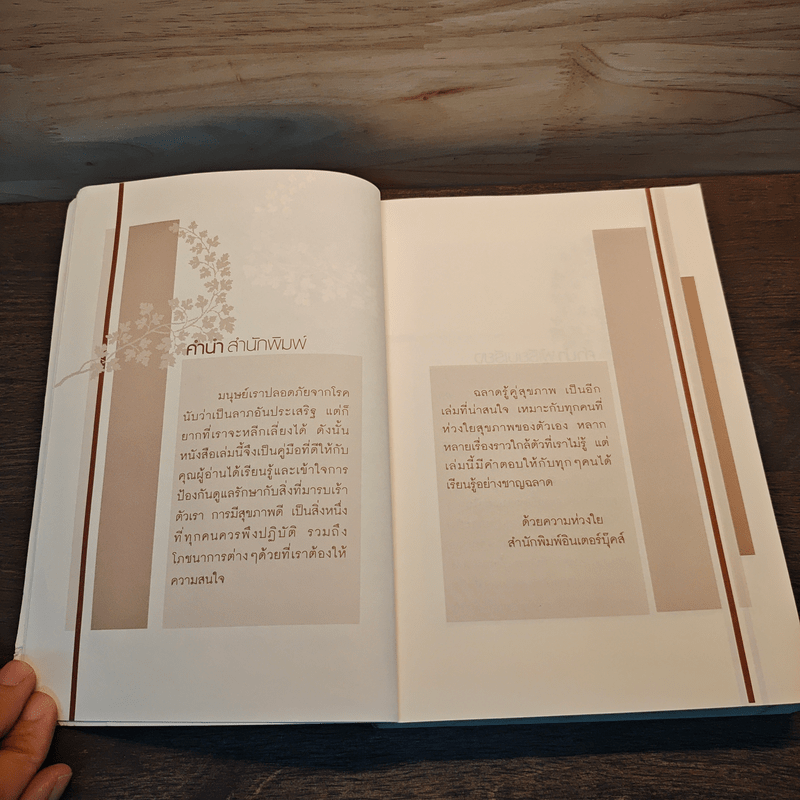 คำนำ สำนักพิมพ์
มนุษย์เราปลอดภัยจากโรค
นับว่าเป็นลาภอันประเสริฐ แต่ก็
ยากที่เราจะหลีกเลี่ยงได้ ดังนั้น
หนังสือเล่มนี้จึงเป็นคู่มือที่ดีให้กับ
คุณผู้อ่านได้เรียนรู้และเข้าใจการ
ป้องกันดูแลรักษากับสิ่งที่มารบเร้า
ตัวเรา การมีสุขภาพดี เป็นสิ่งหนึ่ง
ที่ทุกคนควรพึงปฏิบัติ รวมถึง
โภชนาการต่างๆด้วยที่เราต้องให้
ความสนใจ
ฉลาดรู้คู่สุขภาพ เป็นอีก
เล่มที่น่าสนใจ เหมาะกับทุกคนที่
ห่วงใยสุขภาพของตัวเอง หลาก
หลายเรื่องราวใกล้ตัวที่เราไม่รู้ แต่
เล่มนี้มีคำตอบให้กับทุกๆคนได้
เรียนรู้อย่างชาญฉลาด
ด้วยความห่วงใย
สำนักพิมพ์อินเตอร์บุ๊คส์